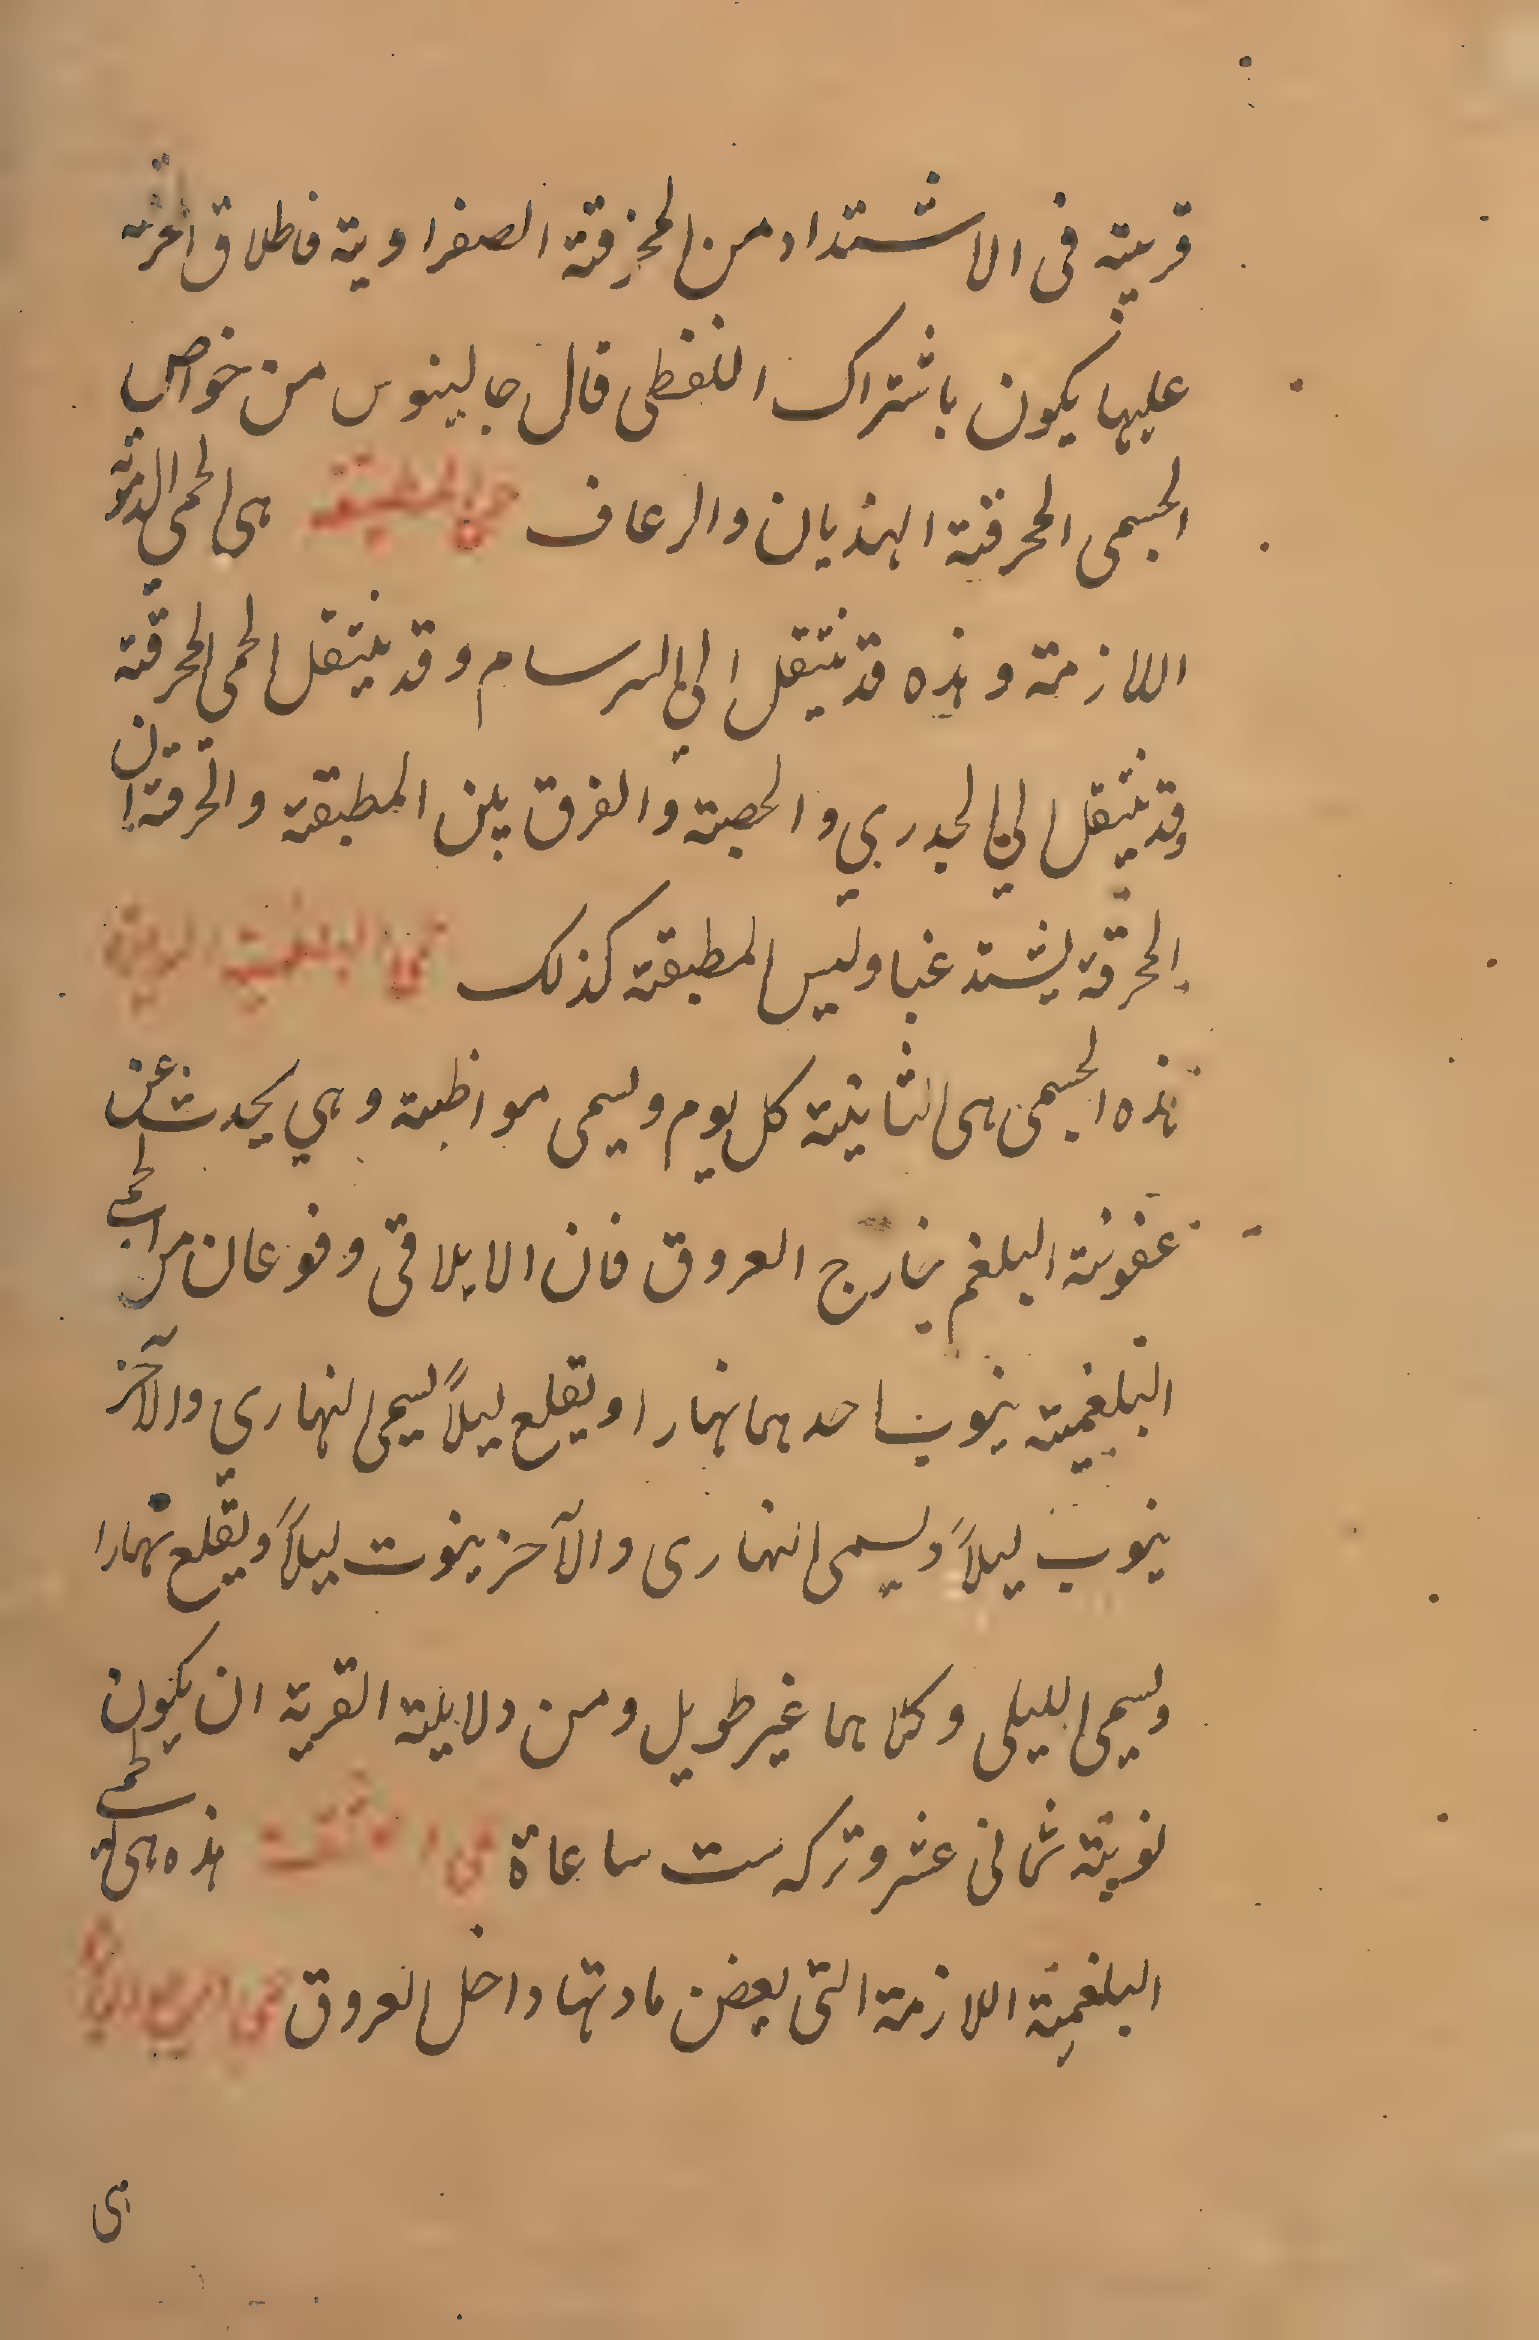 قريبته فى الاشتداد من المحرقة الصفراوية فاطلاق المحرقة
عليها يكون باشتراك اللفظى قال جالينوس من خواص
الحمى المحرقة الهذيان والرعاف حمى المطبقة هى الحمى الدموية
اللازمة وهذه قد ينتقل الى السرسام وقد ينتقل الحمى المحرقة
وقد ينتقل الى الجدري والحصبة والفرق بين المطبقة والمحرقة ان
المحرقة يشتد غبا وليس المطبقة كذلك حمى البلغمية الدايرة
هذه الحمى هى النائبة كل يوم ويسمى مواظبة وهي يحدث عن
عفونة البلغم خارج العروق قال الايلاقى وفوعان من الحمى
البلغمية ينوب احدهما نهارا ويقلع ليلاً يسمى النهاري والآخر
ينوب ليلاً ويسمى النهارى والآخر ينوب ليلاً ويقلع نهارا
ويسمى الليلى وكلاهما غير طويل ومن دلايله القريه ان يكون
نوبته ثمانى عشر وتركه ست ساعاة حمى اللثقة هذه هى الحمى
البلغمية اللازمة التى يعفن مادتها داخل العروق حمى الربع الدايرة
هى